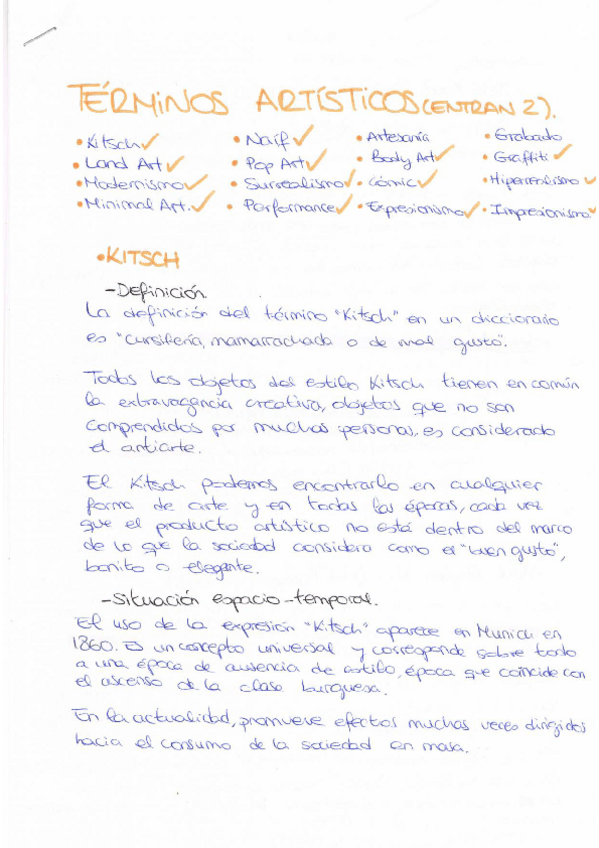 TÉRMINOS ARTÍSTICOS (ENTRAN 2).
• Kitsch ✓ • Naíf ✓ • Artesanía • Grabado
• Land Art ✓ • Pop Art ✓ • Body Art ✓ • Graffiti ✓
• Modernismo ✓ • Surrealismo ✓ • Cómic ✓ • Hiperrealismo ✓
• Minimal Art. ✓ • Performance ✓ • Expresionismo ✓ • Impresionismo ✓
• KITSCH
- Definición
La definición del término "Kitsch" en un diccionario
es "cursilería, mamarrachada o de mal gusto".
Todos los objetos del estilo Kitsch tienen en común
la extravagancia creativa, objetos que no son
comprendidos por muchas personas, es considerado
el antiarte.
El Kitsch podemos encontrarlo en cualquier
forma de arte y en todas las épocas, cada vez
que el producto artístico no está dentro del marco
de lo que la sociedad considera como el "buen gusto",
bonito o elegante.
- Situación espacio-temporal.
El uso de la expresión "Kitsch" aparece en Munich en
1860. Es un concepto universal y corresponde sobre todo
a una época de ausencia de estilo, época que coincide con
el ascenso de la clase burguesa.
En la actualidad, promueve efectos muchas veces dirigidos
hacia el consumo de la sociedad en masa.